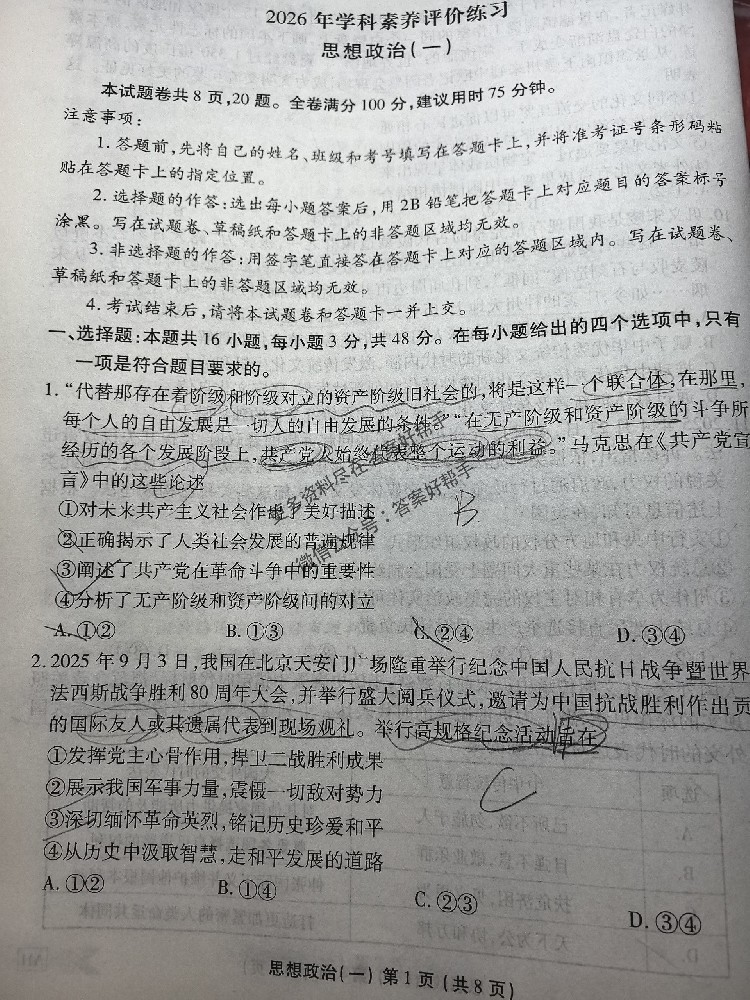 2026年学科素养评价练习
思想政治(一)
本试题卷共8页,20题。全卷满分100分,建议用时75分钟。
注意事项:
1.答题前,先将自己的姓名、班级和考号填写在答题卡上,并将准考证号条形码粘
贴在答题卡上的指定位置。
2.选择题的作答:选出每小题答案后,用2B铅笔把答题卡上对应题目的答案标号
涂黑。写在试题卷、草稿纸和答题卡上的非答题区域均无效。
3.非选择题的作答:用签字笔直接答在答题卡上对应的答题区域内。写在试题卷、
草稿纸和答题卡上的非答题区域均无效。
4.考试结束后,请将本试题卷和答题卡一并上交。
一、选择题:本题共16小题,每小题3分,共48分。在每小题给出的四个选项中,只有
一项是符合题目要求的。
1.“代替那存在着阶级和阶级对立的资产阶级旧社会的,将是这样一个联合体,在那里,
每个人的自由发展是一切人的自由发展的条件。”“在无产阶级和资产阶级的斗争所
经历的各个发展阶段上,共产党人始终代表整个运动的利益。”马克思在《共产党宣
言》中的这些论述
①对未来共产主义社会作出了美好描述
②正确揭示了人类社会发展的普遍规律
③阐述了共产党在革命斗争中的重要性
④分析了无产阶级和资产阶级间的对立
B
A.①② B.①③ C.②④ D.③④
更多资料尽在答案好帮手
微信公众号:答案好帮手
2.2025年9月3日,我国在北京天安门广场隆重举行纪念中国人民抗日战争暨世界
法西斯战争胜利80周年大会,并举行盛大阅兵仪式,邀请为中国抗战胜利作出贡
的国际友人或其遗属代表到现场观礼。举行高规格纪念活动旨在
①发挥党主心骨作用,捍卫二战胜利成果
②展示我国军事力量,震慑一切敌对势力
③深切缅怀革命英烈,铭记历史珍爱和平
④从历史中汲取智慧,走和平发展的道路
C
A.①② B.①④ C.②③ D.③④
思想政治(一) 第1页(共8页)